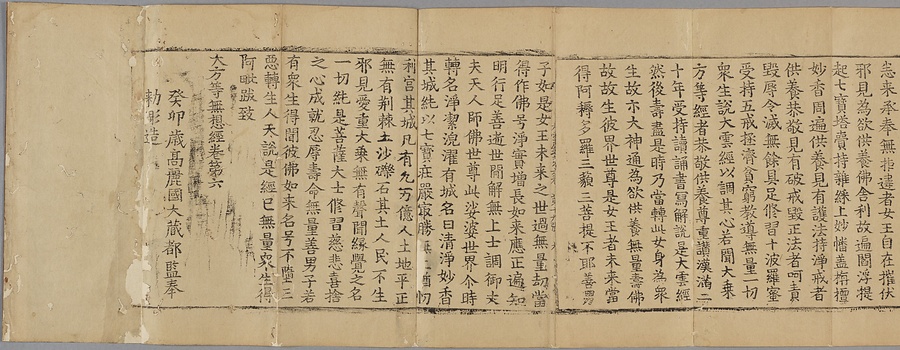 忠来承奉無拒違者女王自在摧伏
邪見為欲供養佛舍利故遍閻浮提
起七寶塔賷持雜綵上妙幡蓋栴檀
妙香周遍供養見有護法持淨戒者
供養恭敬見有破戒毀正法者呵責
毀辱令滅無餘具足修習十波羅蜜
受持五戒拯濟貧窮教導無量一切
衆生說大雲經以調其心若聞大乗
方等經者恭敬供養尊重讃漢滿二
十年受持讀誦書寫解說是大雲經
然後壽盡是時乃當轉此女身為衆
生故示大神通為欲供養無量壽佛
故故生彼界世尊是女王者未来當
得阿耨多羅三藐三菩提不耶善男
子如是女王未来之世過無量劫當
得作佛号淨寶增長如来應正遍知
明行足善逝世間解無上士調御丈
夫天人師佛世尊此娑婆世界尒時
轉名淨潔浣濯有城名曰清淨妙香
其城純以七寶莊嚴寂勝無上猶忉
利宮其城凡有九万億人土地平正
無有荆棘土沙礫石其土人民不生
邪見愛重大乗無有聲聞緣覺之名
一切純是菩薩大士修習慈悲喜捨
之心成就忍辱壽命無量善男子若
有衆生得聞彼佛如来名号不墮三
惡轉生人天說是經已無量衆生得
阿毗跋致
大方等無想經卷第六
癸卯歲高麗國大藏都監奉
勅彫造